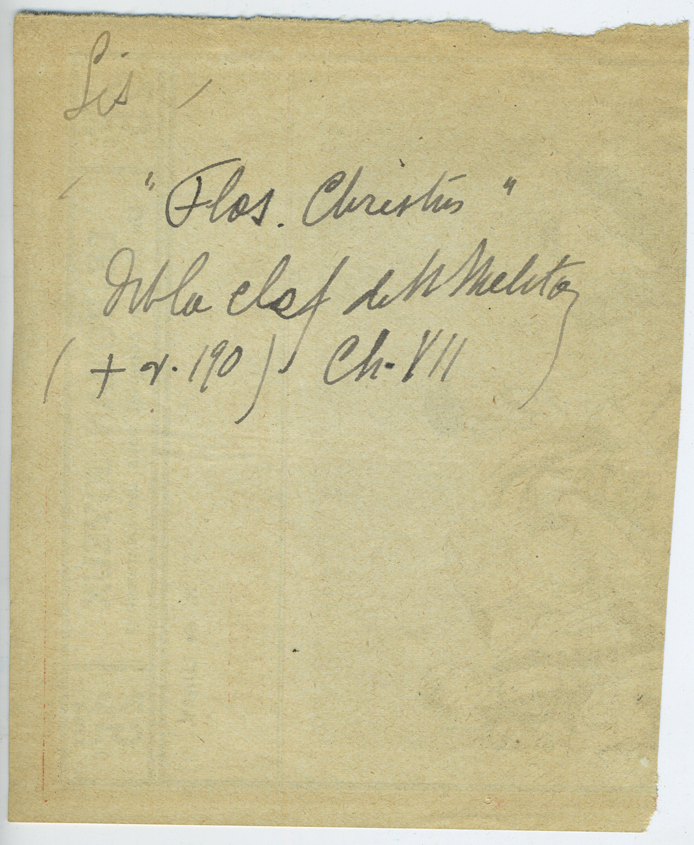 Lis
"Flos. Christus"
la clef de St Meliton
(+ v. 190). Ch. VII